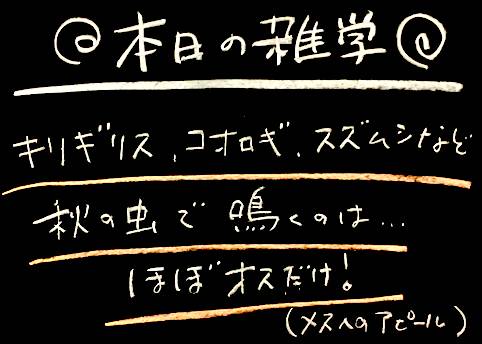 本日の雑学
キリギリス、コオロギ、スズムシなど
秋の虫で鳴くのは…
ほぼオスだけ!
(メスへのアピール)